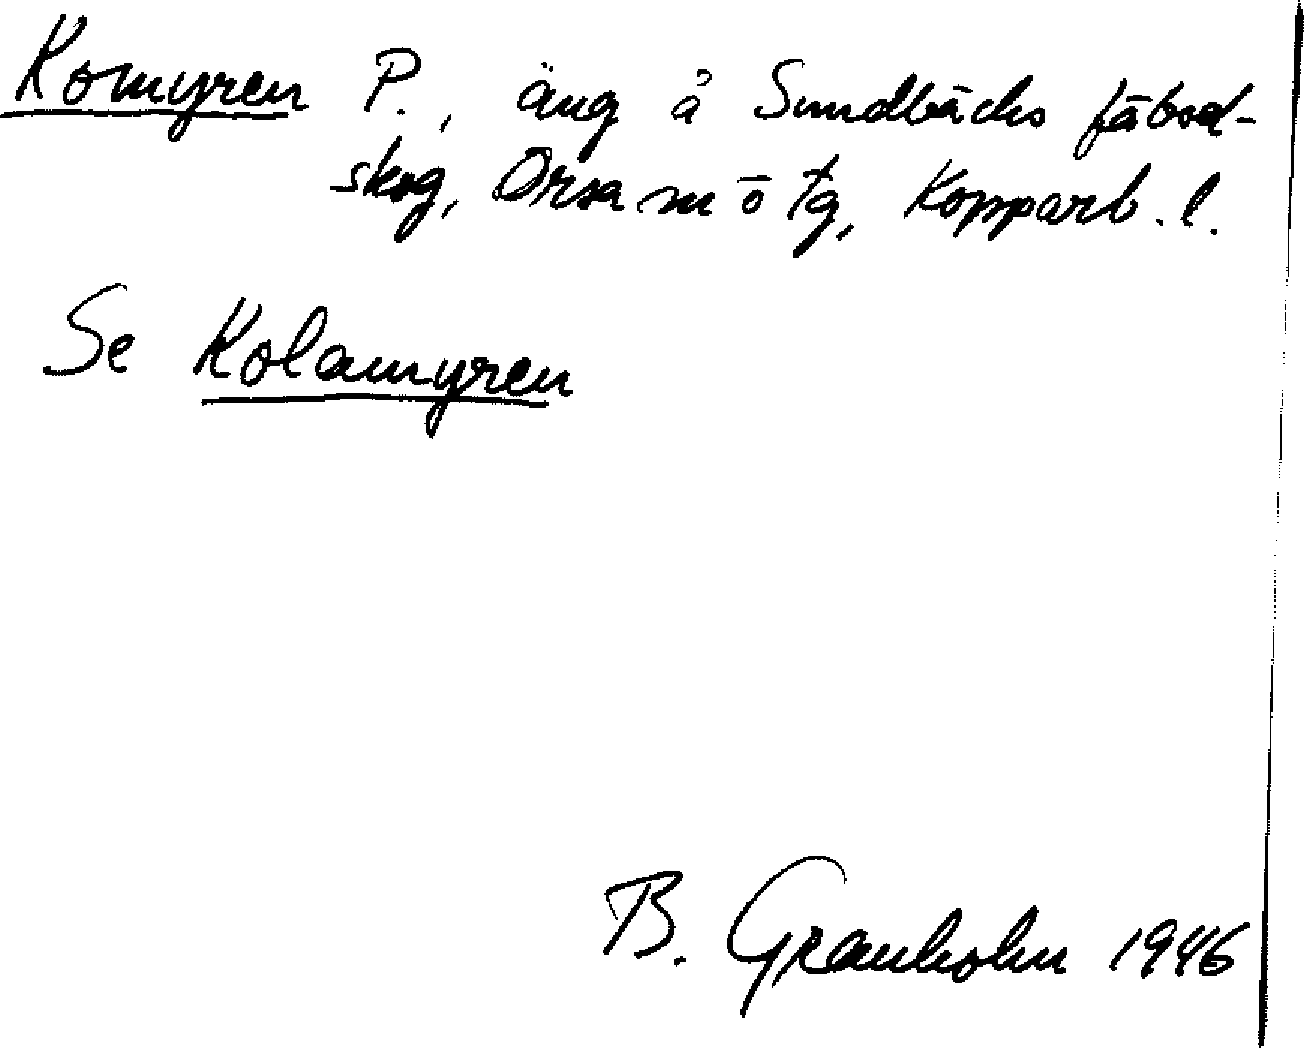 Komyren P., äng å Sundbäcks fäbod-
skog, Orsa sn ō tg, Kopparb. l.
Se Kolamyren
B. Granholm 1946